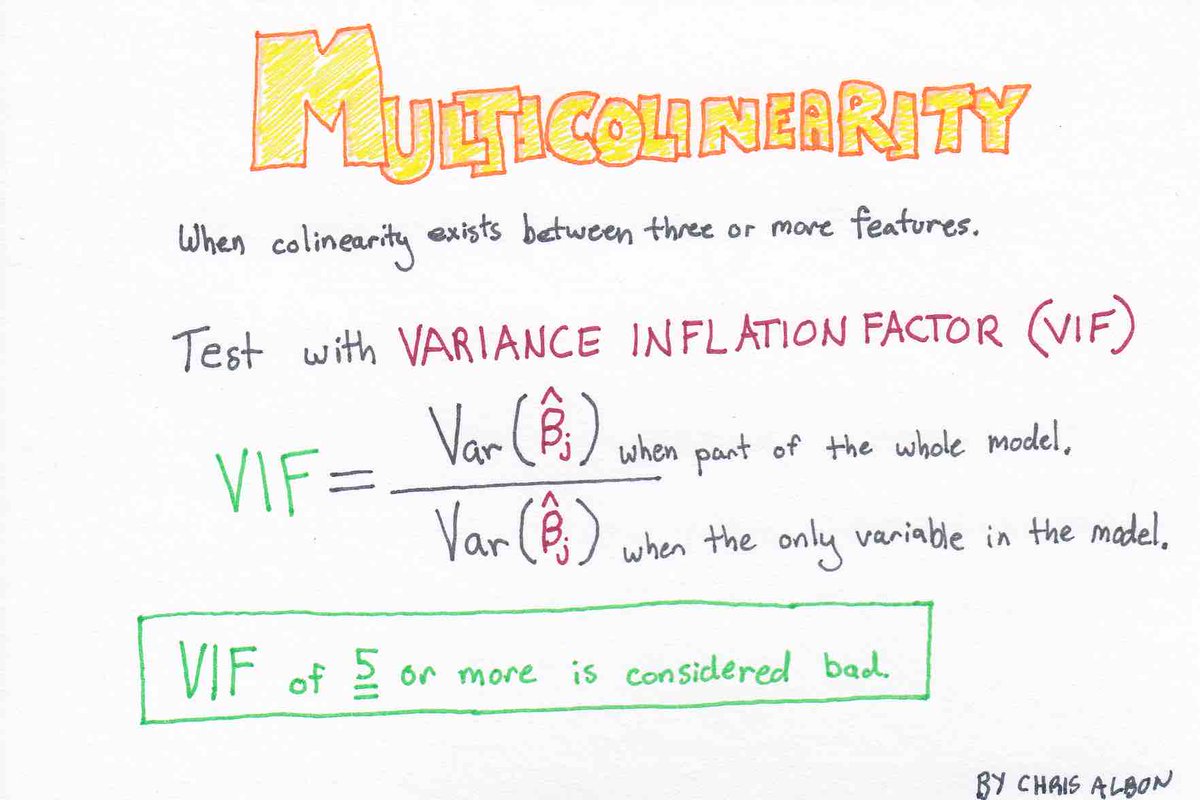 MULTICOLINEARITY
When colinearity exists between three or more features.
Test with VARIANCE INFLATION FACTOR (VIF)
VIF = Var(β̂j) when part of the whole model.
Var(β̂j) when the only variable in the model.
VIF of 5 or more is considered bad.
BY CHRIS ALBON